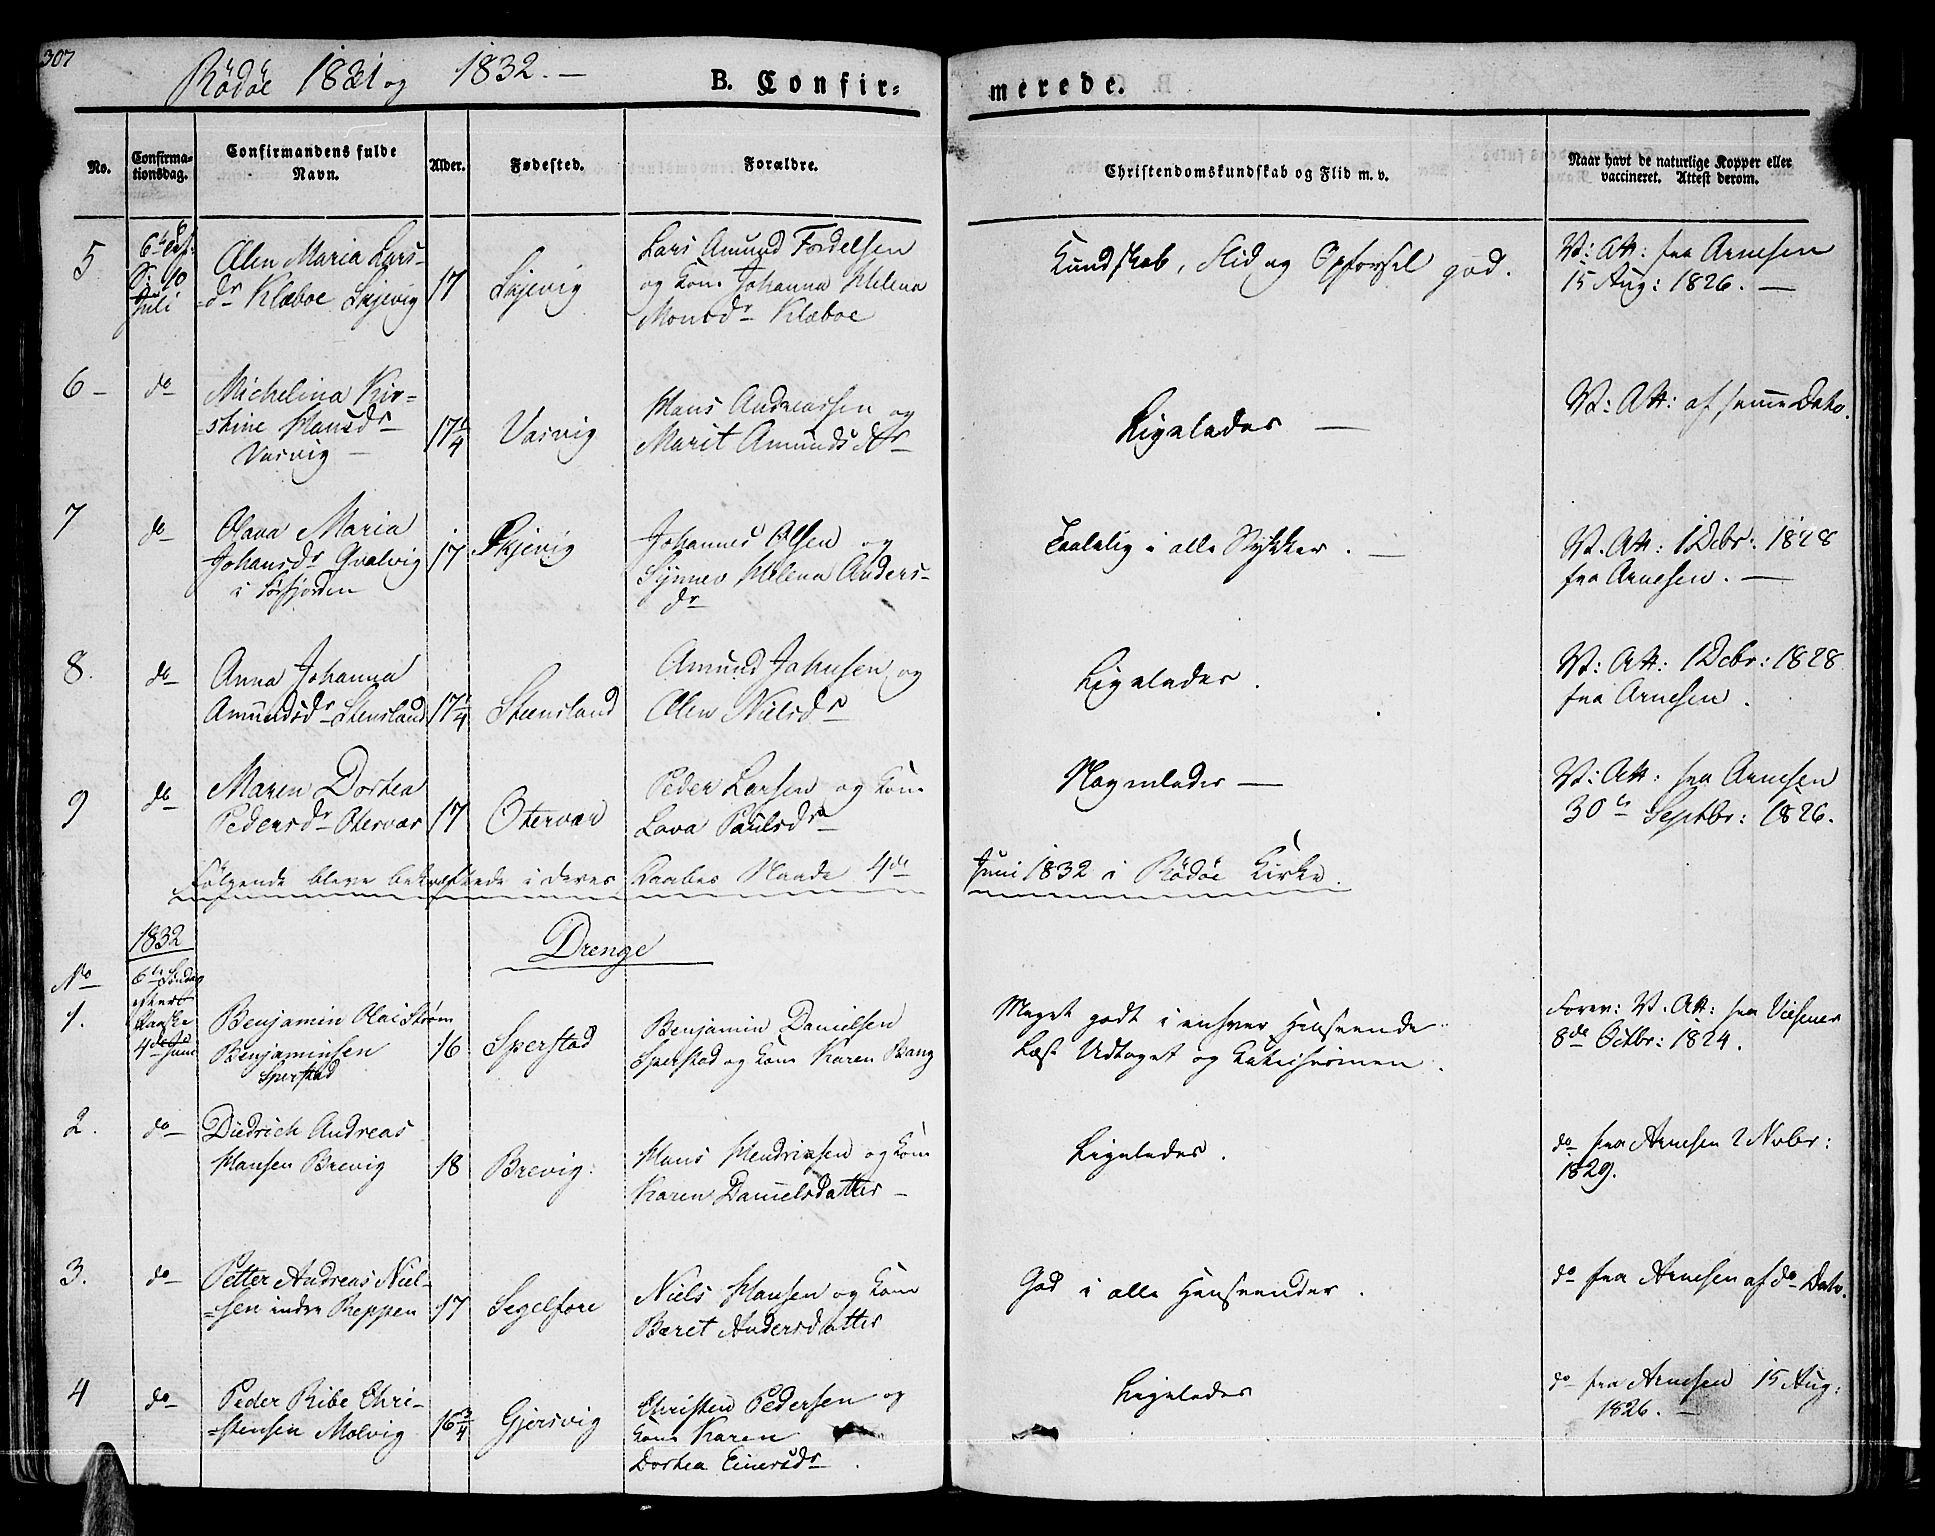 307
Rödöe 1831 og 1832. —
B. Confir=
merede.
No.
Confirma=
tionsdag.
Confirmandens fulde
Navn.
Alder.
Fødested.
Forældre.
Christendomskundskab og Flid m. v.
Naar havt de naturlige Kopper eller
vaccineret. Attest derom.
5
10
Juli
Olen Maria Lars-
dr Klæboe Skjevig
17
Skjevig
Lars Amund Fordelsen
og Kone Johanna Helena
Monsdr Klæboe
Kundskab, Flid og Opforsel god.
V: Att: fra Arnesen
15 Aug: 1826. —
6 -
do
Michelina Kir=
=stine Hansdr
Vasvig —
17 1/4
Vasvig
Hans Andreassen og
Marit Amundsdr
Ligeledes —
V: Att: af samme Dato.
7
do
Olava Maria
Johansdr Qvalvig
i Sörfjorden
17
Skjevig
Johannes Olsen og
Synnev Helena Anders-
dr
Taalelig i alle Stykker. —
V. Att: 1 Dcbr: 1828
fra Arnesen. —
8.
do
Anna Johanna
Amundsdr Stensland
17 1/4
Steensland
Amund Johnsen og
Olen Nielsdr
Ligeledes.
V: Att: 1 Dcbr: 1828
fra Arnesen.
9
do
Maren Dorthea
Pedersdr Otervær
17
Otervær
Peder Larsen og Kone
Lava Paulsdr
Nogenledes —
V: Att: fra Arnesen
30te Septbr: 1826.
Fölgende bleve bekræftede i deres Daabes Naade 4de
Juni 1832 i Rödöe Kirke.
1832
Drenge
No
6te Söndag
efter
Paaske
4de Juni
1.
Benjamin Olai Ström
Benjaminsen
Sperstad
16
Sperstad
Benjamin Danielsen
Sperstad og Kone Karen Bang
Meget godt i enhver Henseende
Læst Udtoget og Katechismen.
Forev: V. Att: fra
8de Octbr: 1824.
2.
do
Diedrich Andreas
Hansen Brevig
18
Brevig:
Hans Hendriksen og Kone
Karen Danielsdatter —
Ligeledes.
do fra Arnesen 2 Novbr:
1829.
3.
do
Petter Andreas Niel=
=sen indre Reppen
17
Segelfore
Niels Hansen og Kone
Beret Andersdatter
God i alle Henseender.
do fra Arnesen af do Dato.
4
do
Peder Ribe Chri=
=stensen Molvig
16 3/4
Gjersvig
Christen Pedersen og
Kone Karen
Dorthea Einersdr.
Ligeledes
do fra Arnesen 15 Aug:
1826. —